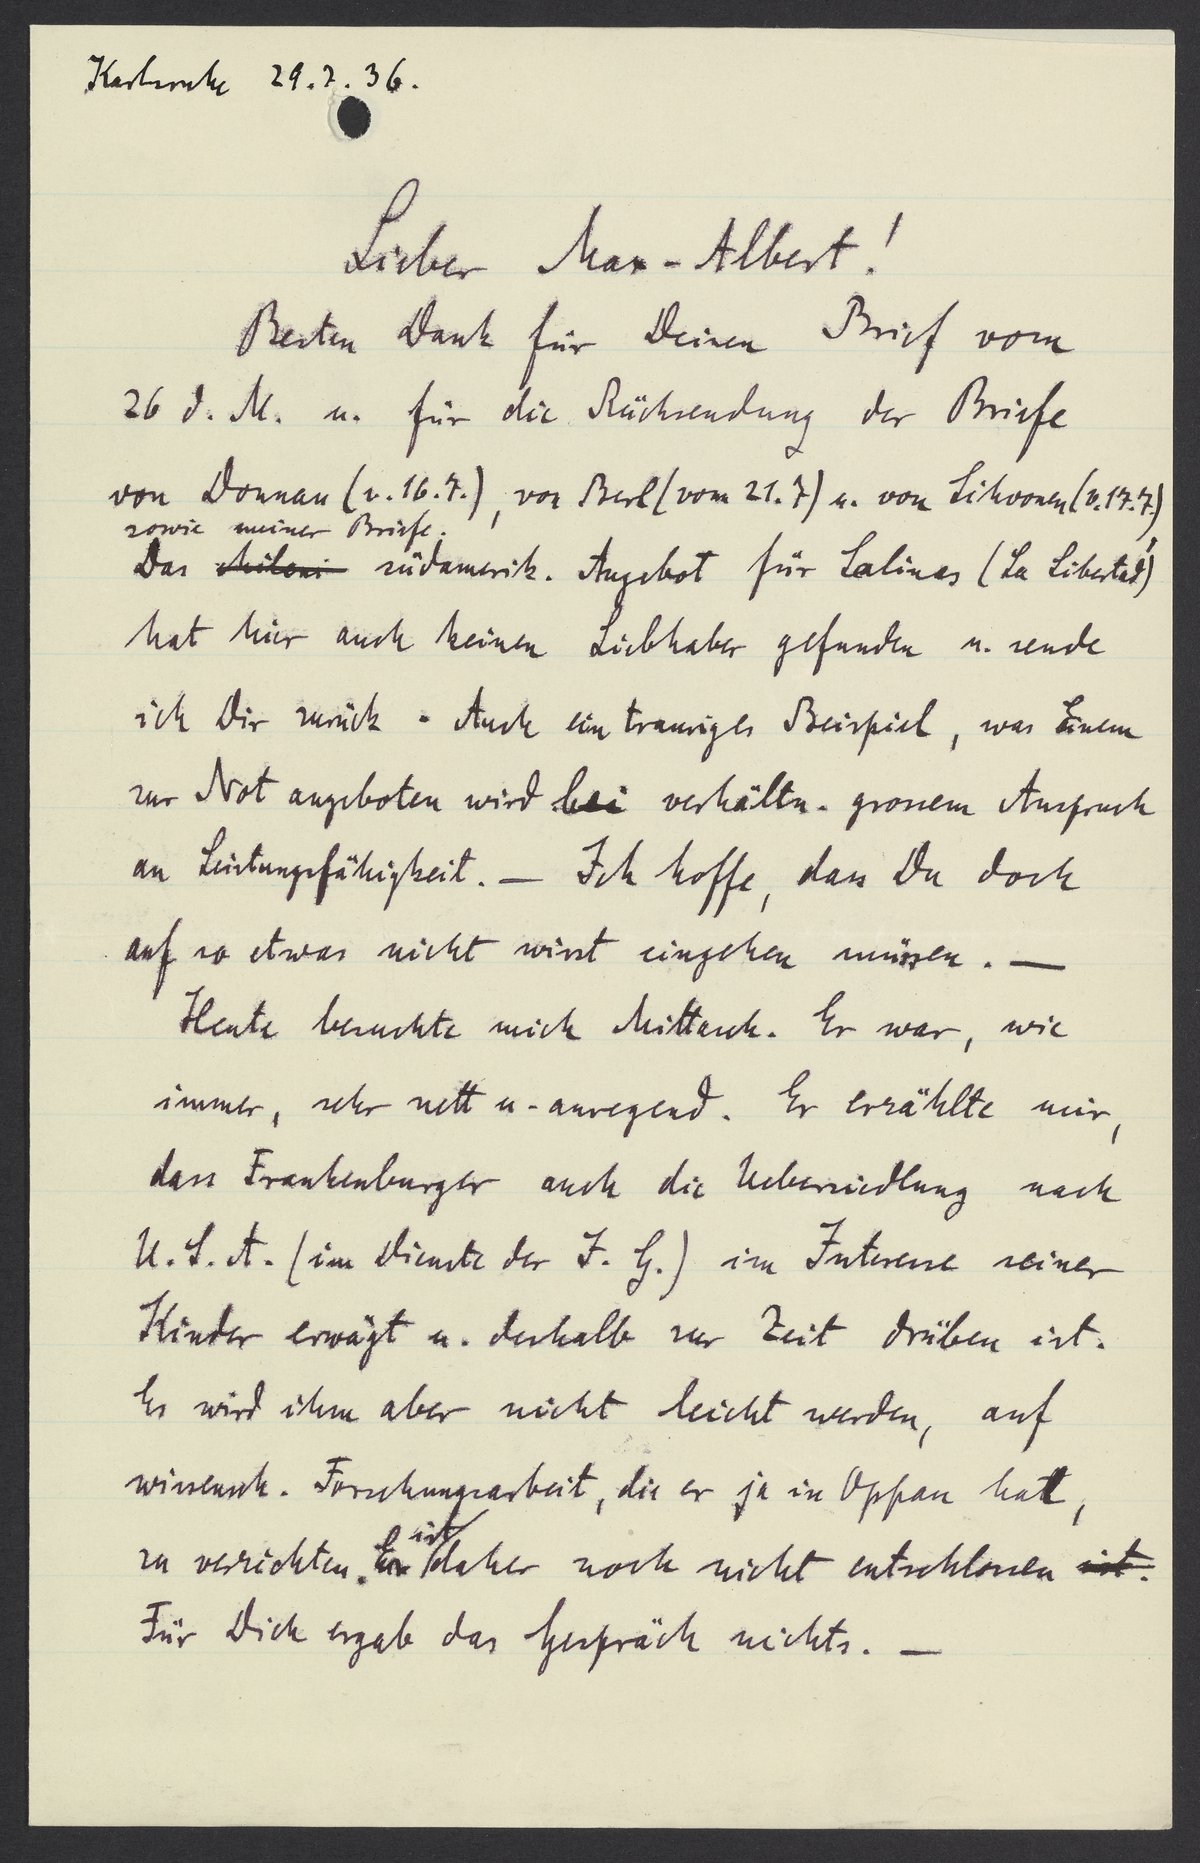 Karlsruhe 29.7.36.
Lieber Max-Albert!
Besten Dank für Deinen Brief vom
26 d. M. u. für die Rücksendung der Briefe
von Donnan (v. 16.7.), von Berl (vom 21.7) u. von Sihvonen (v. 17.7.)
sowie meiner Briefe.
Das chileni südamerik. Angebot für Salinas (La Libertad)
hat hier auch keinen Liebhaber gefunden u. sende
ich Dir zurück. Auch ein trauriges Beispiel, was Einem
zur Not angeboten wird bei verhältn. grossem Anspruch
an Leistungsfähigkeit. — Ich hoffe, dass Du doch
auf so etwas nicht wirst eingehen müssen. —
Heute besuchte mich Mittasch. Er war, wie
immer, sehr nett u. anregend. Er erzählte mir,
dass Frankenburger auch die Uebersiedlung nach
U.S.A. (im Dienste der I. G.) im Interesse seiner
Kinder erwägt u. deshalb zur Zeit drüben ist.
Es wird ihm aber nicht leicht werden, auf
wissensch. Forschungsarbeit, die er ja in Oppau hatt,
zu verzichten. Er ist daher noch nicht entschlossen ist.
Für Dich ergab das Gespräch nichts. —